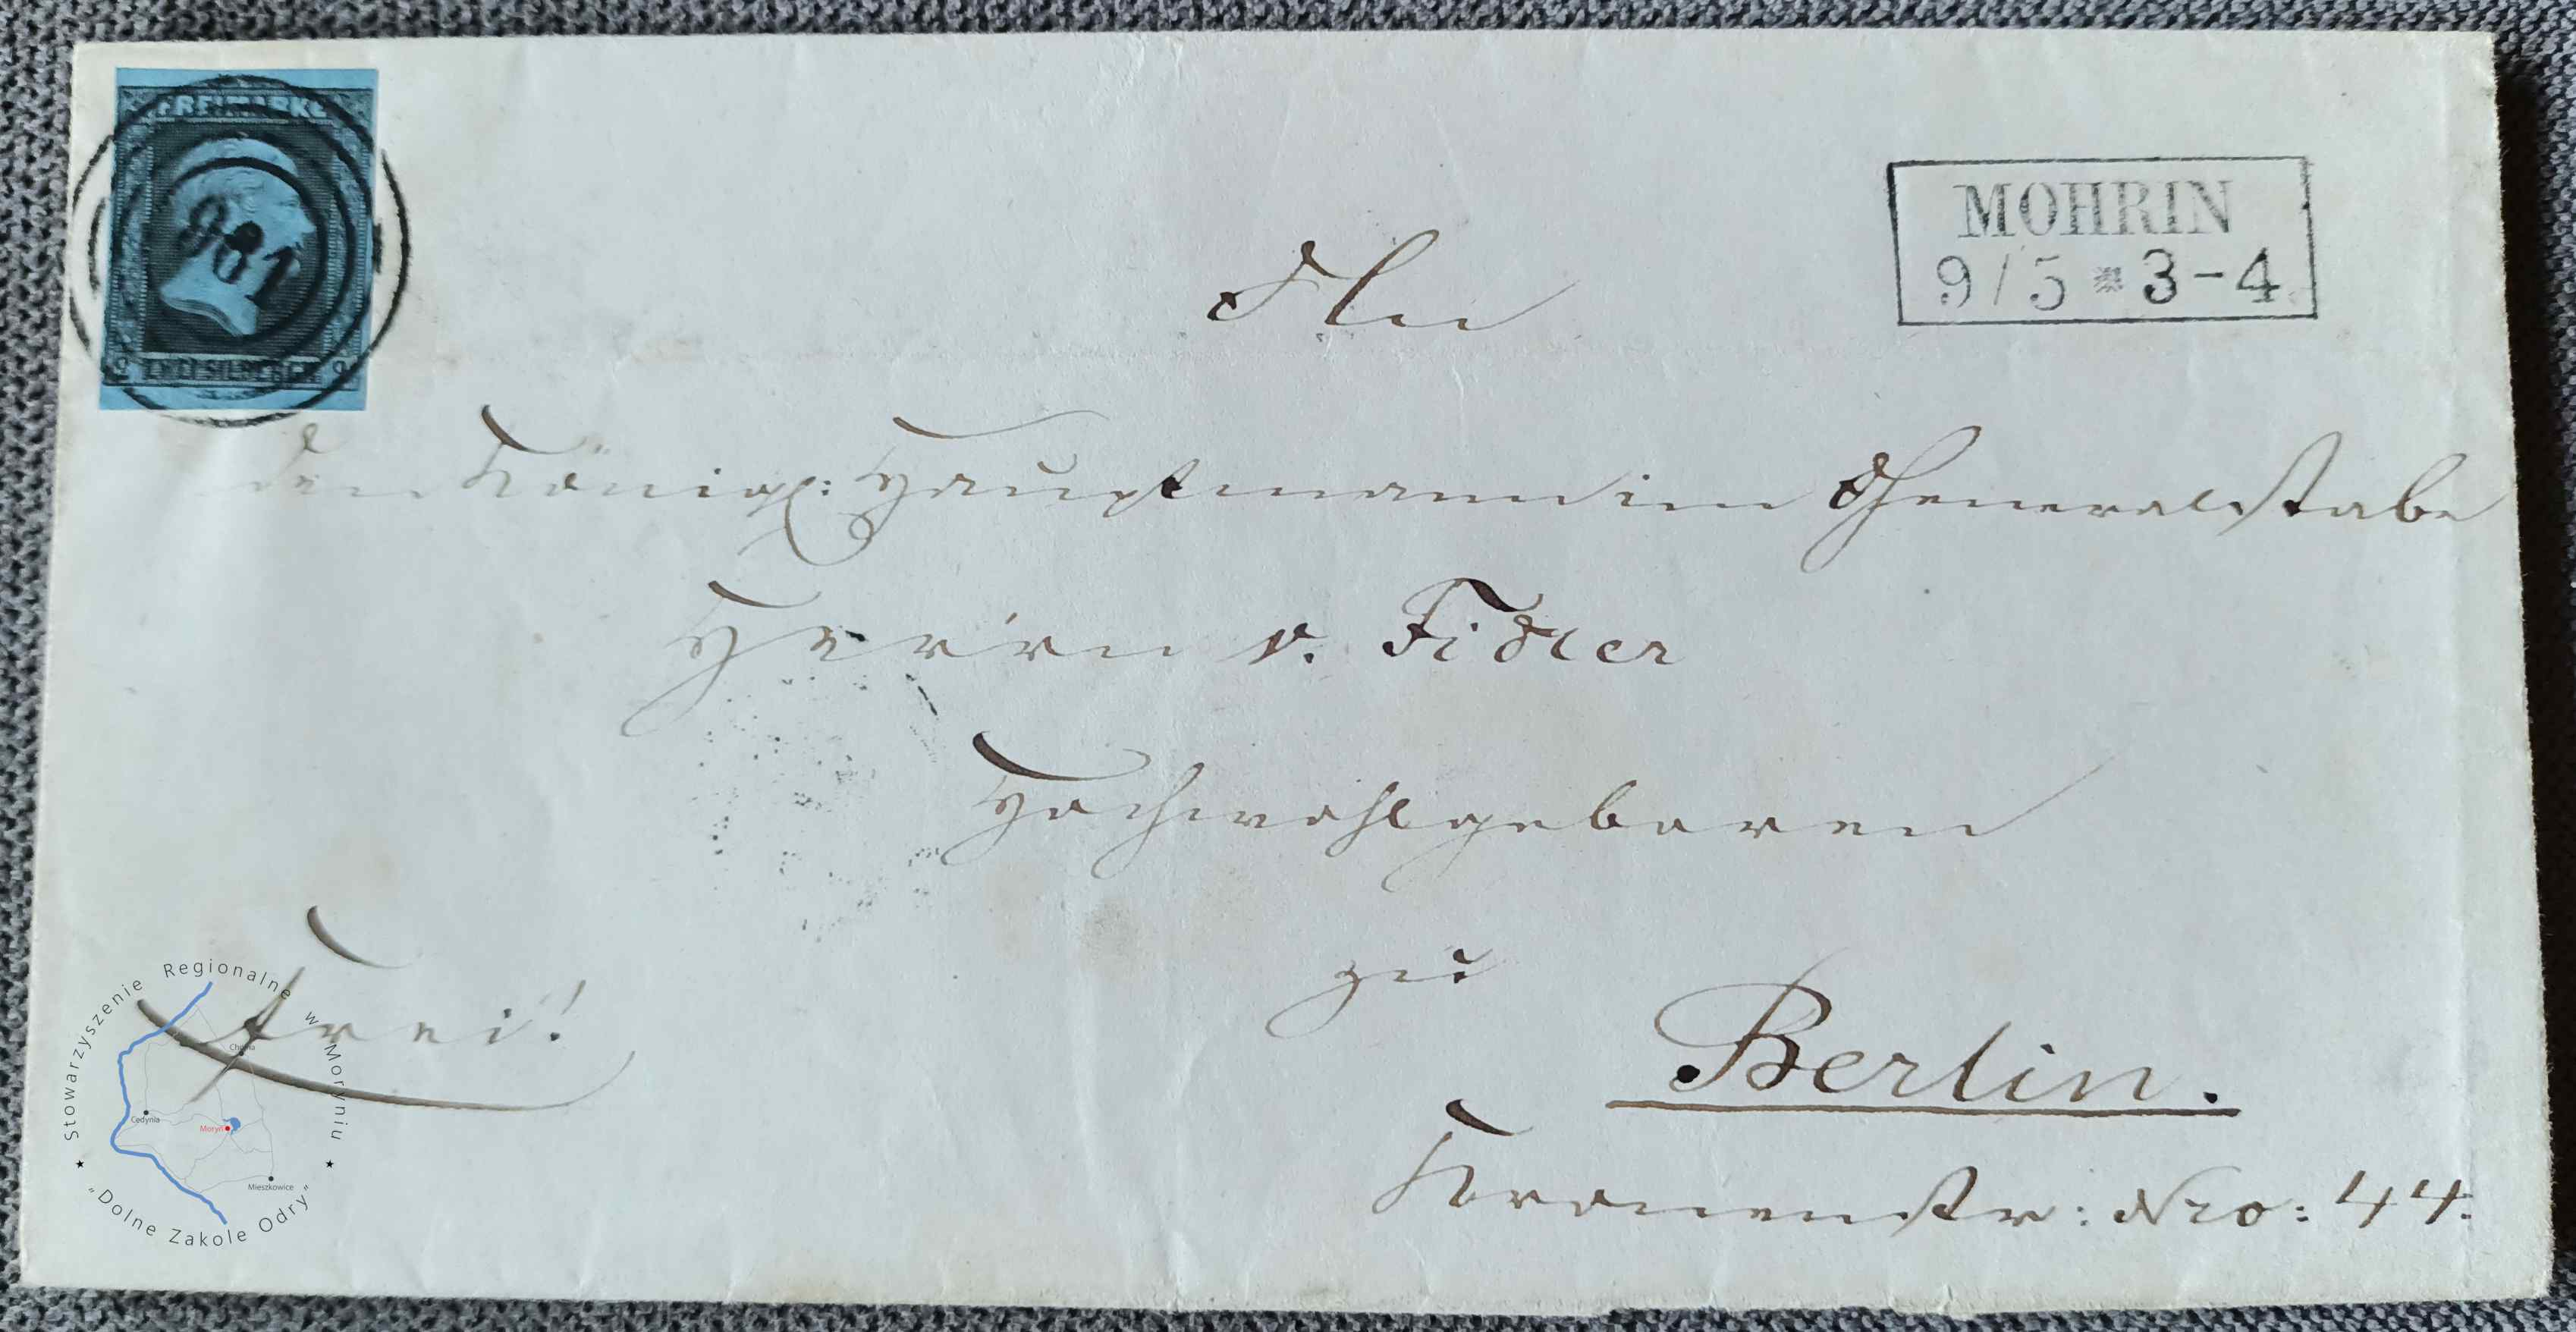 FREIMARKE
981
2 ZWEI SILBERGR. 2
MOHRIN
9/5 * 3-4
An
den Königl: Hauptmann im Generalstabe
Herrn v. Fidler
Hochwohlgeboren
zu
Berlin.
Kronenstr: Nro: 44.
Frei!
Stowarzyszenie Regionalne w Moryniu
Chojna
Cedynia
Moryń
Mieszkowice
★ "Dolne Zakole Odry" ★